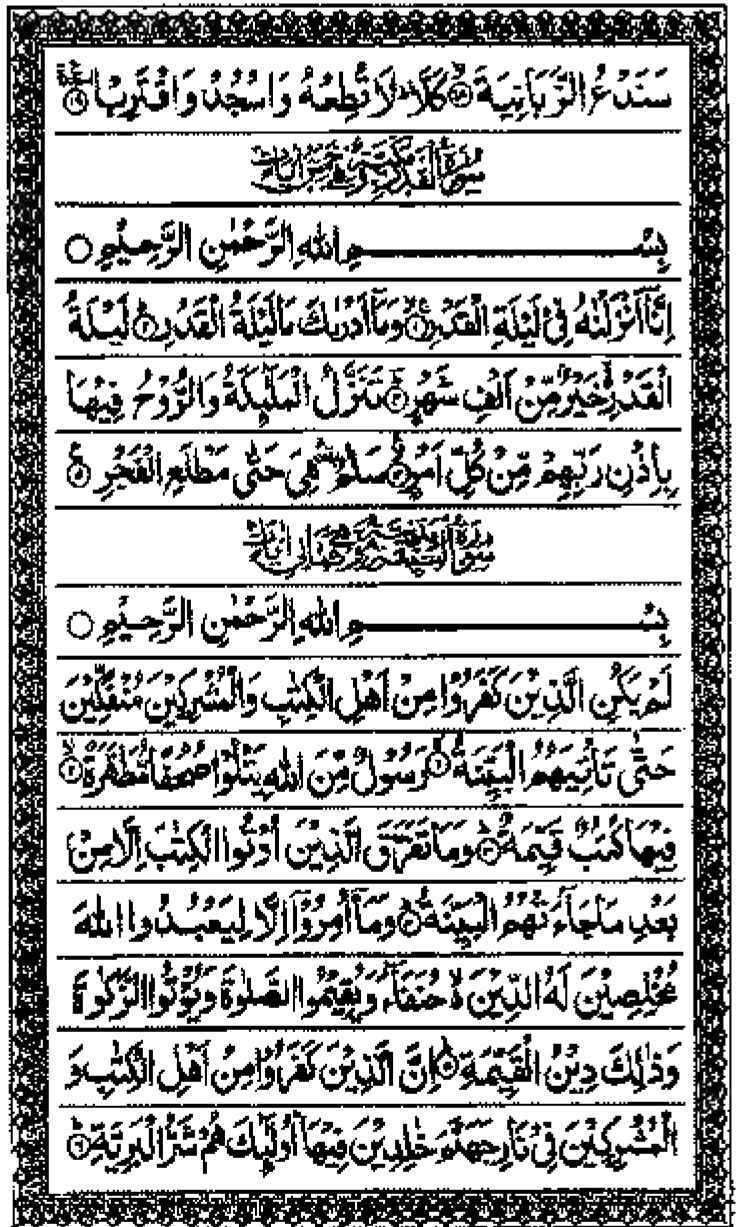 سَنَدْعُ الزَّبَانِيَةَ ۙ۱۸ كَلَّا ؕ لَا تُطِعْهُ وَاسْجُدْ وَاقْتَرِبْ ۩ ۱۹ السجدة
سُوْرَةُ الْقَدْرِ مَكِّيَّةٌ وَّهِيَ خَمْسُ اٰيَاتٍ
بِسْمِ اللهِ الرَّحْمٰنِ الرَّحِيْمِ ○
اِنَّآ اَنْزَلْنٰهُ فِيْ لَيْلَةِ الْقَدْرِ ۱ وَمَآ اَدْرٰىكَ مَا لَيْلَةُ الْقَدْرِ ۲ لَيْلَةُ
الْقَدْرِ خَيْرٌ مِّنْ اَلْفِ شَهْرٍ ۳ تَنَزَّلُ الْمَلٰٓئِكَةُ وَالرُّوْحُ فِيْهَا
بِاِذْنِ رَبِّهِمْ مِّنْ كُلِّ اَمْرٍ ۴ سَلٰمٌ هِيَ حَتّٰى مَطْلَعِ الْفَجْرِ ۵
سُوْرَةُ الْبَيِّنَةِ مَدَنِيَّةٌ وَّهِيَ ثَمَانِيْ اٰيَاتٍ
بِسْمِ اللهِ الرَّحْمٰنِ الرَّحِيْمِ ○
لَمْ يَكُنِ الَّذِيْنَ كَفَرُوْا مِنْ اَهْلِ الْكِتٰبِ وَالْمُشْرِكِيْنَ مُنْفَكِّيْنَ
حَتّٰى تَاْتِيَهُمُ الْبَيِّنَةُ ۱ رَسُوْلٌ مِّنَ اللهِ يَتْلُوْا صُحُفًا مُّطَهَّرَةً ۲
فِيْهَا كُتُبٌ قَيِّمَةٌ ۳ وَمَا تَفَرَّقَ الَّذِيْنَ اُوْتُوا الْكِتٰبَ اِلَّا مِنْۢ
بَعْدِ مَا جَآءَتْهُمُ الْبَيِّنَةُ ۴ وَمَآ اُمِرُوْٓا اِلَّا لِيَعْبُدُوا اللهَ
مُخْلِصِيْنَ لَهُ الدِّيْنَ ۙ حُنَفَآءَ وَيُقِيْمُوا الصَّلٰوةَ وَيُؤْتُوا الزَّكٰوةَ
وَذٰلِكَ دِيْنُ الْقَيِّمَةِ ۵ اِنَّ الَّذِيْنَ كَفَرُوْا مِنْ اَهْلِ الْكِتٰبِ وَ
الْمُشْرِكِيْنَ فِيْ نَارِ جَهَنَّمَ خٰلِدِيْنَ فِيْهَا اُولٰٓئِكَ هُمْ شَرُّ الْبَرِيَّةِ ۶